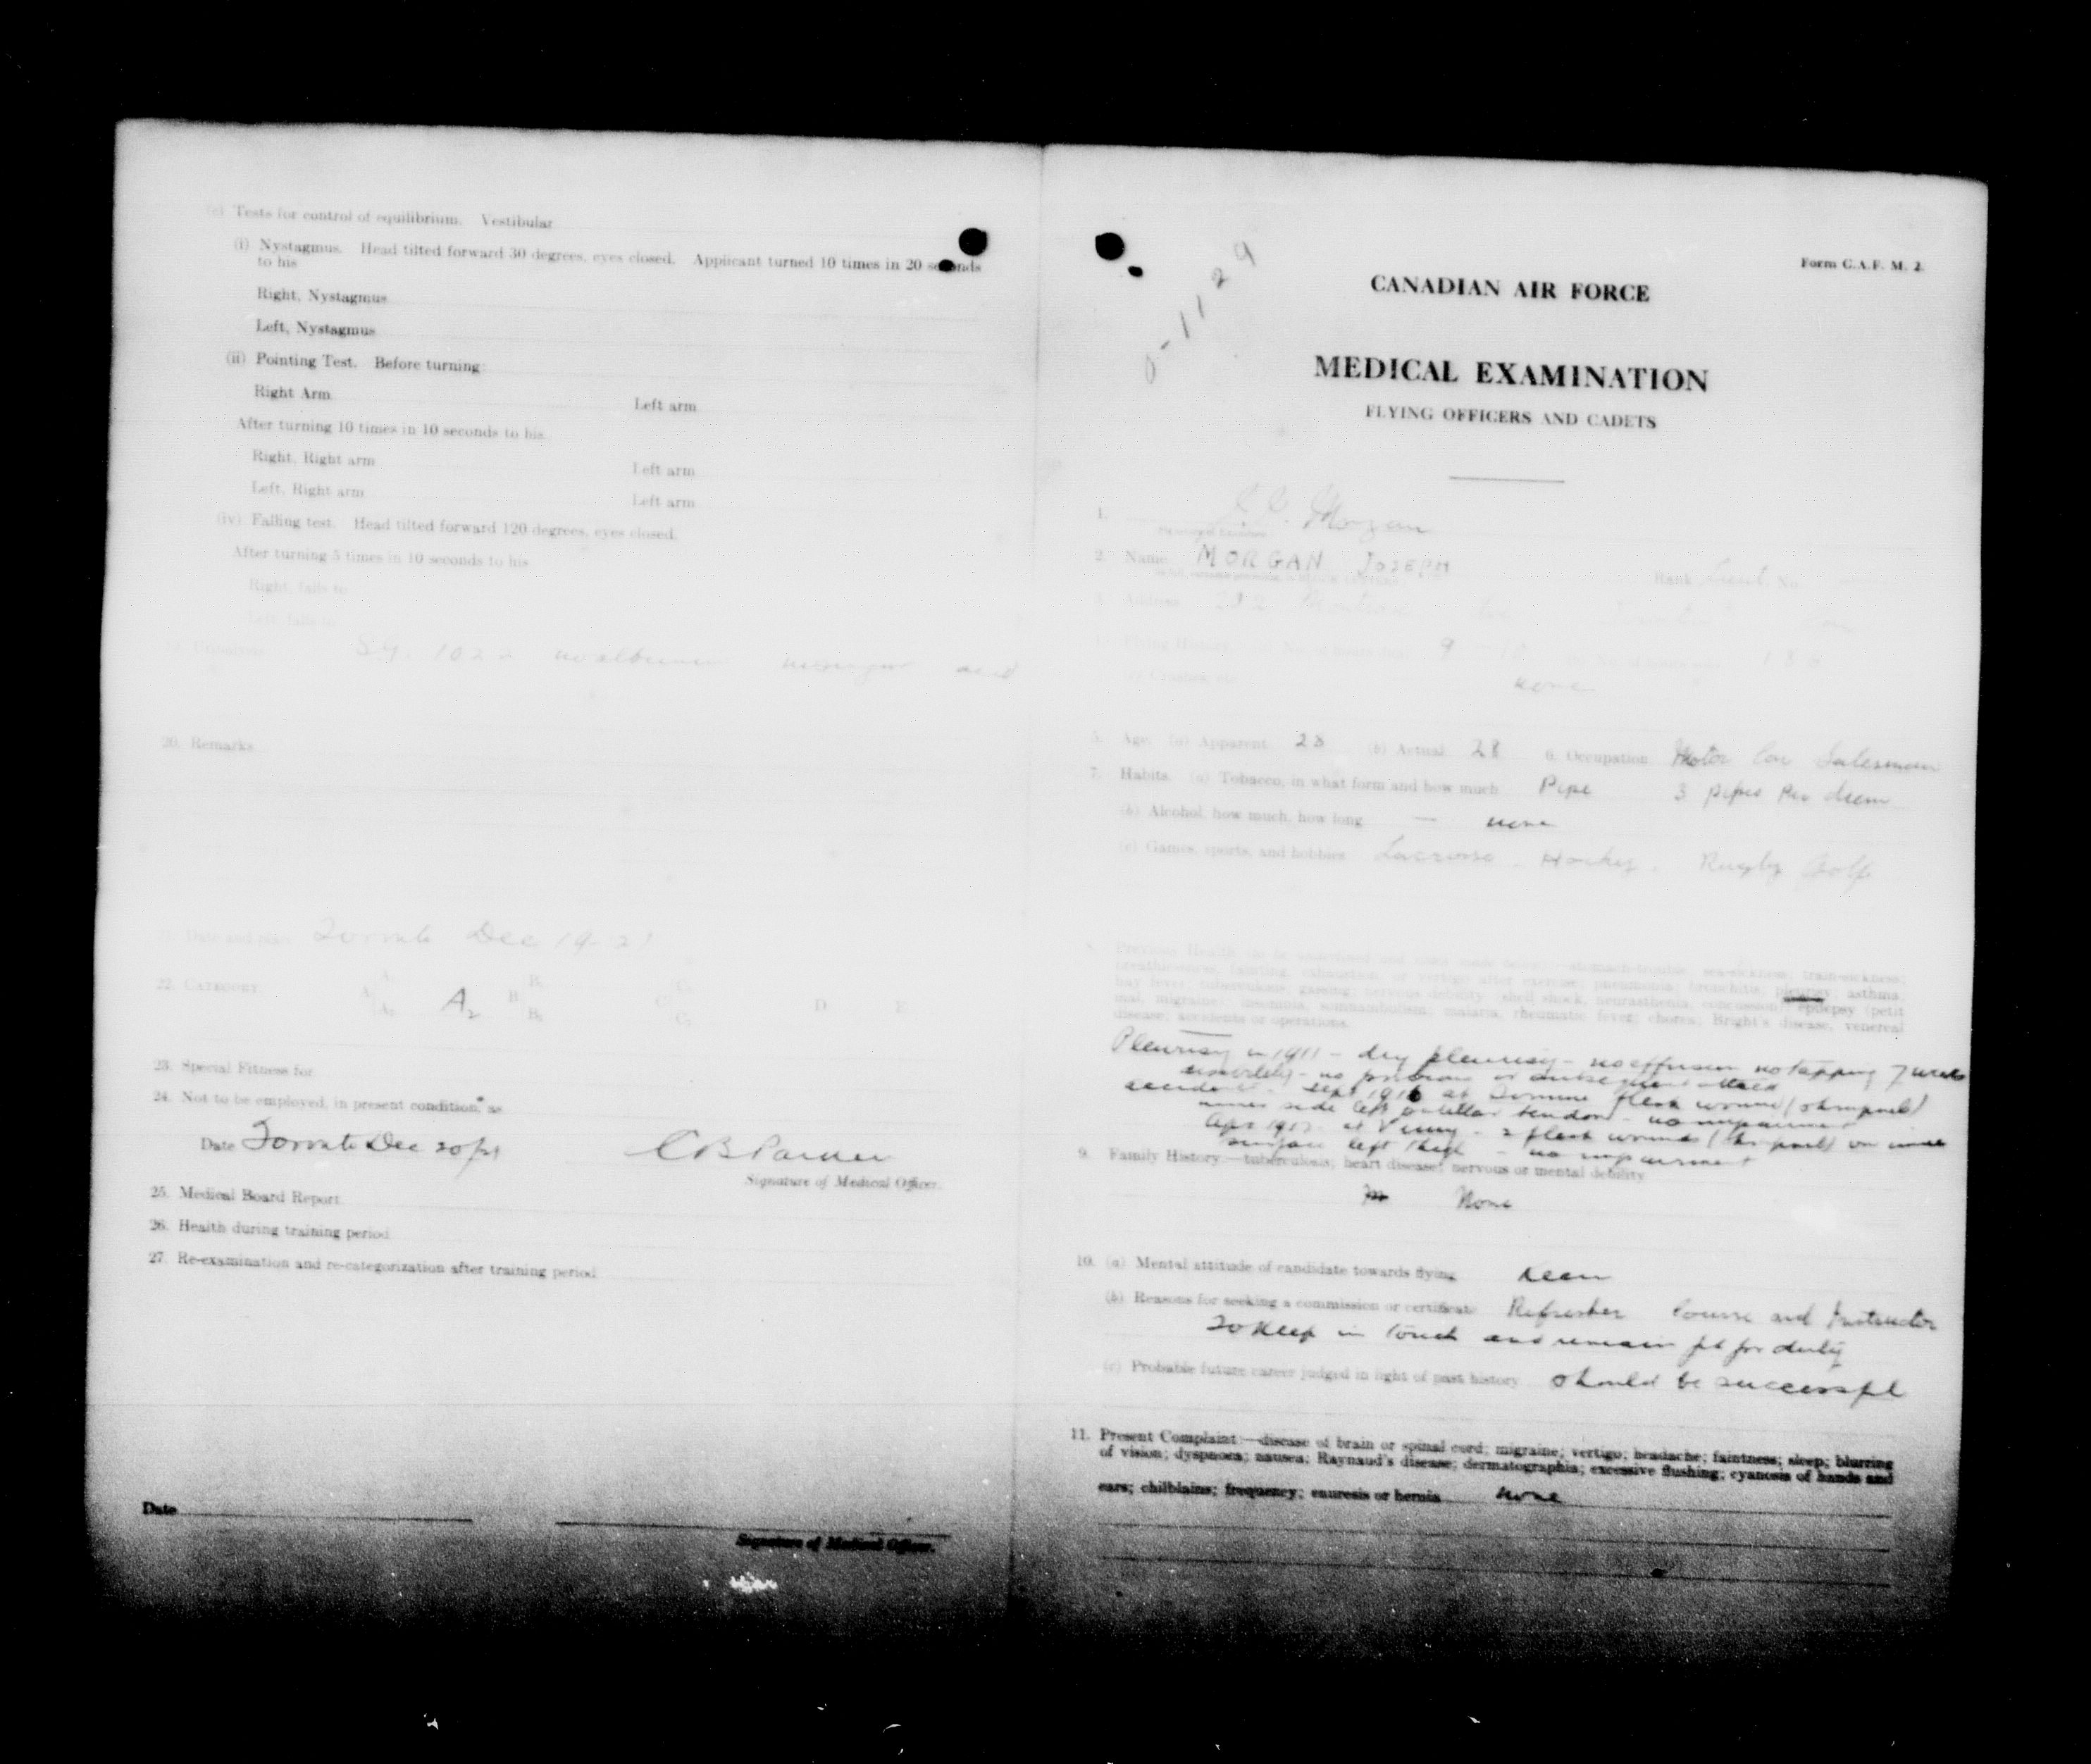 (c) Tests for control of equilibrium. Vestibular
(i) Nystagmus. Head tilted forward 30 degrees, eyes closed. Applicant turned 10 times in 20 seconds
to his
Right, Nystagmus
Left, Nystagmus
(ii) Pointing Test. Before turning:
Right Arm Left arm
After turning 10 times in 10 seconds to his
Right, Right arm Left arm
Left, Right arm Left arm
(iv) Falling test. Head tilted forward 120 degrees, eyes closed.
After turning 5 times in 10 seconds to his
Right, falls to
Left, falls to
S.G. 1022 no albumin no sugar acid
20. Remarks
21. Date and place Toronto Dec 19-21
22. CATEGORY A A₁ A₂ A₂ B B₁ B₂ C C₁ C₂ D E
23. Special Fitness for
24. Not to be employed, in present condition, as
Date Toronto Dec 20/21 C B Parker
Signature of Medical Officer.
25. Medical Board Report
26. Health during training period
27. Re-examination and re-categorization after training period
Date
Signature of Medical Officer.
0-1129
Form C.A.F. M. 2.
CANADIAN AIR FORCE
MEDICAL EXAMINATION
FLYING OFFICERS AND CADETS
1. Morgan
2. Name MORGAN JOSEPH Rank Lieut No.
3. Address Toronto
4. Flying History
none
5. Age (a) Apparent 28 (b) Actual 28 6. Occupation Motor Car Salesman
7. Habits. (a) Tobacco, in what form and how much Pipe 3 pipes per diem
(b) Alcohol, how much, how long — none
(c) Games, sports, and hobbies Lacrosse - Hockey - Rugby Golf
8. Previous Health stomach-trouble; sea-sickness; train-sickness;
breathlessness, fainting, exhaustion or vertigo after exercise; pneumonia; bronchitis; pleurisy; asthma;
hay fever; tuberculosis; gassing; nervous debility; shell shock, neurasthenia; concussion; epilepsy (petit
mal, migraine); insomnia, somnambulism; malaria, rheumatic fever; chorea; Bright's disease, venereal
disease; accidents or operations.
Pleurisy in 1911 - dry pleurisy - no effusion no tapping 7 weeks
no previous or subsequent attack
accident - Sept 1916 at Somme flesh wound (shrapnel)
inner side left patellar tendon - no impairment
Apr 1917 - at Vimy - 2 flesh wounds (shrapnel) on inner
surface left thigh - no impairment
9. Family History—tuberculosis; heart disease; nervous or mental debility
None
10. (a) Mental attitude of candidate towards flying Keen
(b) Reasons for seeking a commission or certificate Refresher Course and Instructor
To keep in touch and remain fit for duty
(c) Probable future career judged in light of past history should be successful
11. Present Complaint:—disease of brain or spinal cord; migraine; vertigo; headache; faintness; sleep; blurring
of vision; dyspnoea; nausea; Raynaud's disease; dermatographia; excessive flushing; cyanosis of hands and
ears; chilblains; frequency; enuresis or hernia none